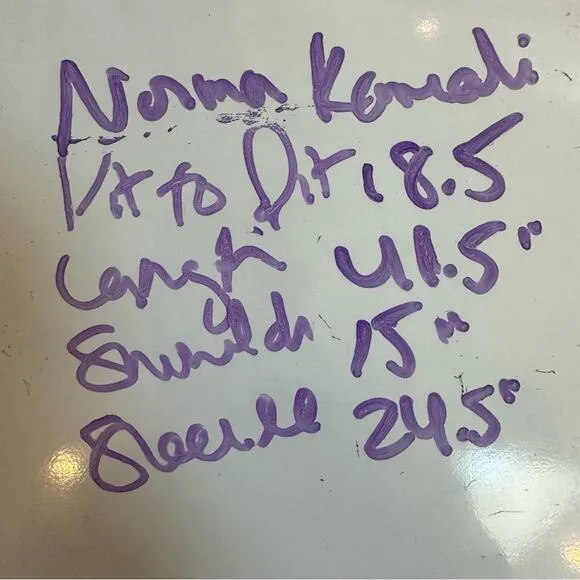 Norma Kamali
Pit to Pit 18.5
Length 41.5"
Shoulder 15"
Sleeve 24.5"